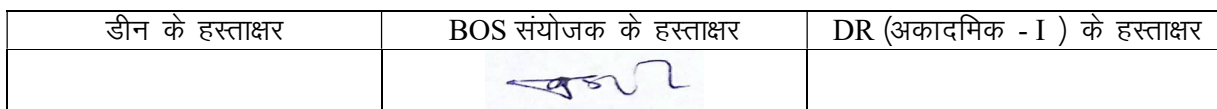 डीन के हस्ताक्षर BOS संयोजक के हस्ताक्षर DR (अकादमिक - I ) के हस्ताक्षर